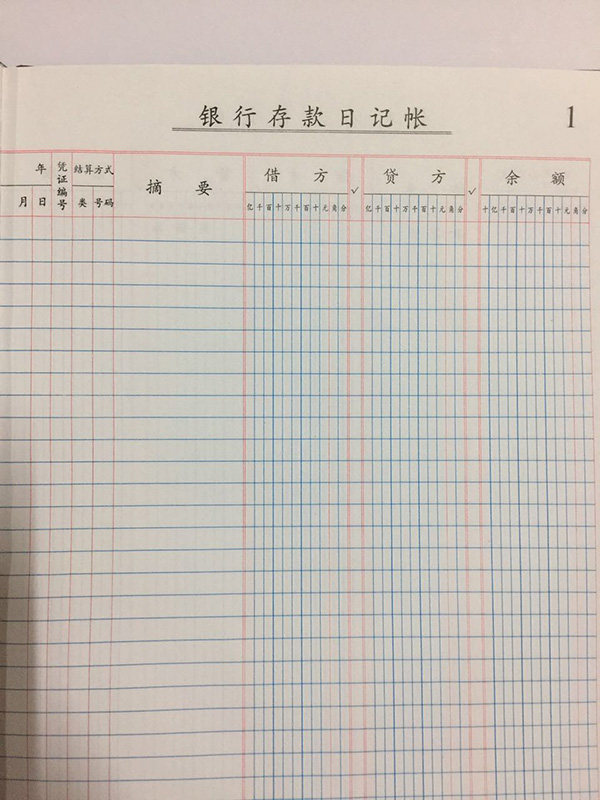 银行存款日记帐
1
年
凭证编号
结算方式
摘要
借方
✓
贷方
✓
余额
月日
类
号码
亿千百十万千百十元角分
亿千百十万千百十元角分
十亿千百十万千百十元角分